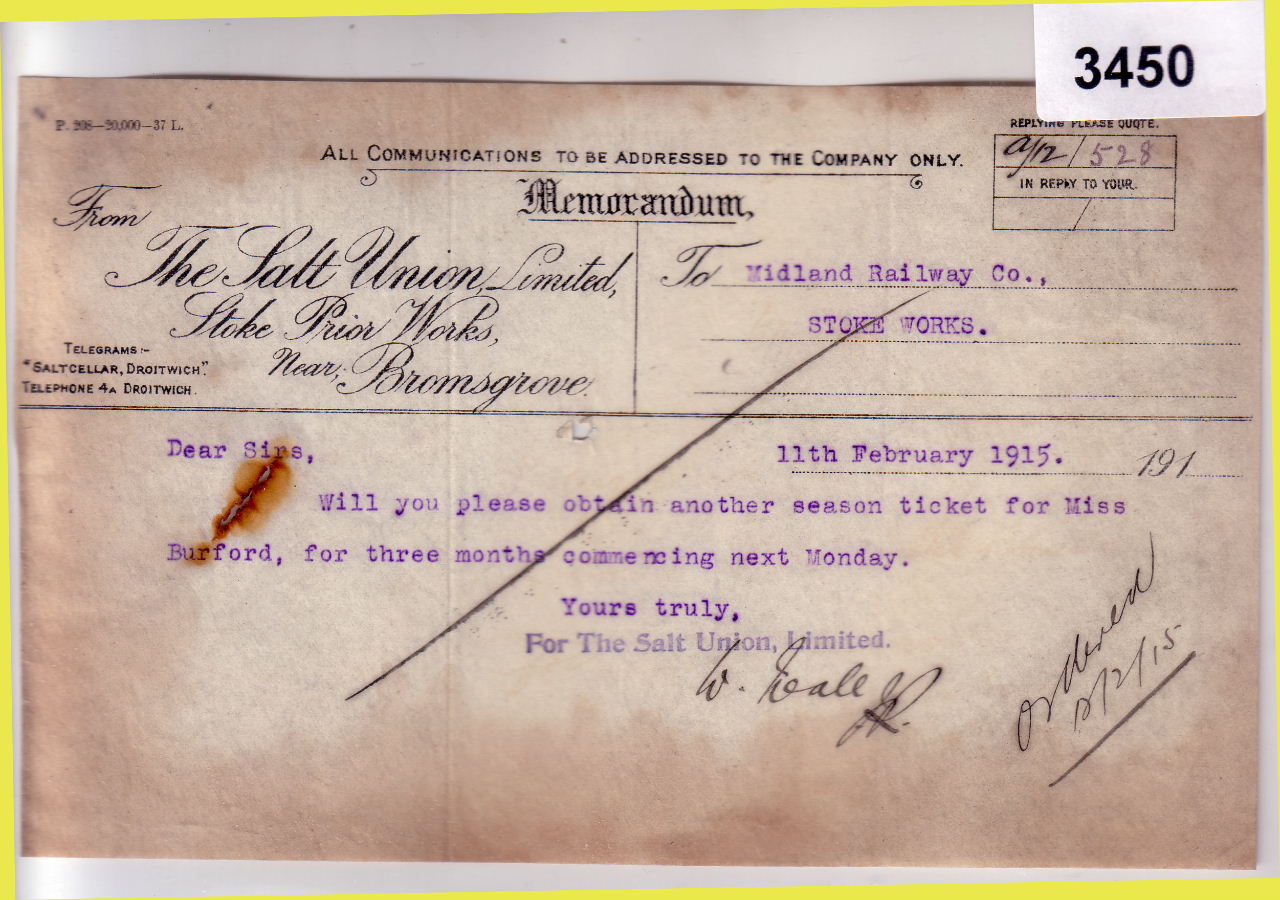 3450
P. 208—20,000—37 L.
REPLYING PLEASE QUOTE.
a/12/528
IN REPLY TO YOUR.
/
ALL COMMUNICATIONS TO BE ADDRESSED TO THE COMPANY ONLY.
Memorandum,
From
The Salt Union, Limited,
Stoke Prior Works,
Near, Bromsgrove.
TELEGRAMS:-
"SALTCELLAR, DROITWICH."
TELEPHONE 4A DROITWICH.
To Midland Railway Co.,
STOKE WORKS.
11th February 1915. 191
Dear Sirs,
Will you please obtain another season ticket for Miss
Burford, for three months commencing next Monday.
Yours truly,
For The Salt Union, Limited.
W.
Ordered
12/2/15